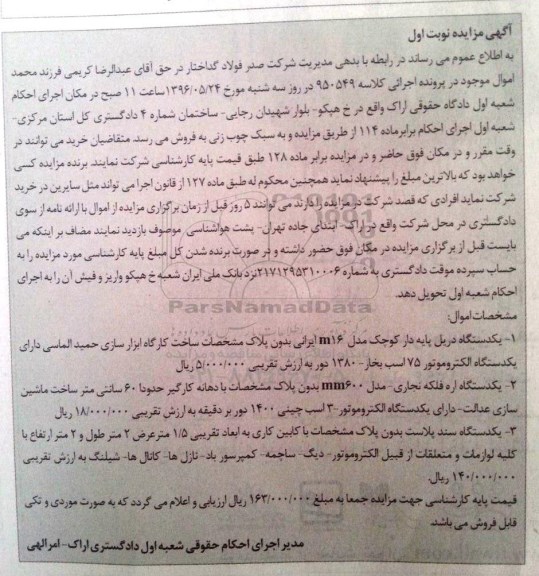 آگهی مزایده نوبت اول
به اطلاع عموم می رساند در رابطه با بدهی مدیریت شرکت صدر فولاد گداختار در حق آقای عبدالرضا کریمی فرزند محمد
اموال موجود در پرونده اجرائی کلاسه ۹۵۰۵۴۹ در روز سه شنبه مورخ ۱۳۹۶/۰۵/۲۴ ساعت ۱۱ صبح در مکان اجرای احکام
شعبه اول دادگاه حقوقی اراک واقع در خ هپکو- بلوار شهیدان رجایی- ساختمان شماره ۴ دادگستری کل استان مرکزی-
شعبه اول اجرای احکام برابر ماده ۱۱۴ از طریق مزایده و به سبک چوب زنی به فروش می رسد. متقاضیان خرید می توانند در
وقت مقرر و در مکان فوق حاضر و در مزایده برابر ماده ۱۲۸ طبق قیمت پایه کارشناسی شرکت نمایند. برنده مزایده کسی
خواهد بود که بالاترین مبلغ را پیشنهاد نماید همچنین محکوم له طبق ماده ۱۲۷ از قانون اجرا می تواند مثل سایرین در خرید
شرکت نماید افرادی که قصد شرکت در مزایده را دارند می توانند ۵ روز قبل از زمان برگزاری مزایده از اموال با ارائه نامه از سوی
دادگستری در محل شرکت واقع در اراک- ابتدای جاده تهران- پشت هواشناسی موصوف بازدید نمایند مضاف بر اینکه می
بایست قبل از برگزاری مزایده در مکان فوق حضور داشته و در صورت برنده شدن کل مبلغ پایه کارشناسی مورد مزایده را به
حساب سپرده موقت دادگستری به شماره ۲۱۷۱۲۹۵۳۱۰۰۰۶ نزد بانک ملی ایران شعبه خ هپکو واریز و فیش آن را به اجرای
احکام شعبه اول تحویل دهد.
ParsNamadData
مشخصات اموال:
۱- یکدستگاه دریل پایه دار کوچک مدل m۱۶ ایرانی بدون پلاک مشخصات ساخت کارگاه ابزار سازی حمید الماسی دارای
یکدستگاه الکتروموتور ۷۵ اسب بخار- ۱۳۸۰ دور به ارزش تقریبی ۵/۰۰۰/۰۰۰ ریال
۲- یکدستگاه اره فلکه نجاری- مدل mm۶۰۰ بدون پلاک مشخصات با دهانه کارگیر حدودا ۶۰ سانتی متر ساخت ماشین
سازی عدالت- دارای یکدستگاه الکتروموتور-۳ اسب چینی ۱۴۰۰ دور بر دقیقه به ارزش تقریبی ۱۸/۰۰۰/۰۰۰ ریال
۳- یکدستگاه سند پلاست بدون پلاک مشخصات با کابین کاری به ابعاد تقریبی ۱/۵ مترعرض ۲ متر طول و ۲ متر ارتفاع با
کلیه لوازمات و متعلقات از قبیل الکتروموتور- دیگ- ساچمه- کمپرسور باد- نازل ها- کانال ها- شیلنگ به ارزش تقریبی
۱۴۰/۰۰۰/۰۰۰ ریال.
قیمت پایه کارشناسی جهت مزایده جمعا به مبلغ ۱۶۳/۰۰۰/۰۰۰ ریال ارزیابی و اعلام می گردد که به صورت موردی و تکی
قابل فروش می باشد.
مدیر اجرای احکام حقوقی شعبه اول دادگستری اراک- امرالهی